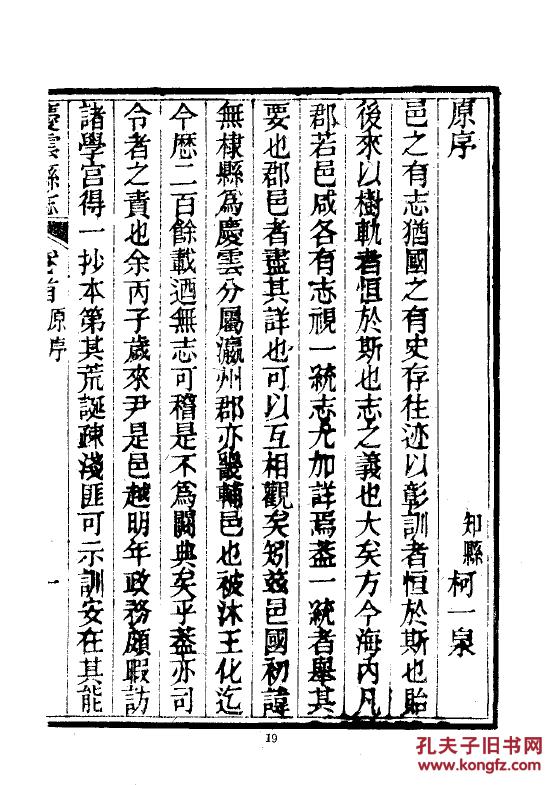 原序
知縣 柯一泉
邑之有志猶國之有史存往迹以彰訓者恒於斯也貽
後來以樹軌者恒於斯也志之義也大矣方今海內凡
郡若邑咸各有志視一統志尤加詳焉蓋一統者舉其
要也郡邑者盡其詳也可以互相觀矣矧兹邑國初諱
無棣縣爲慶雲分屬瀛州郡亦畿輔邑也被沐王化迄
今歴二百餘載迺無志可稽是不爲闕典矣乎葢亦司
令者之責也余丙子歲來尹是邑越明年政務頗暇訪
諸學宫得一抄本第其荒誕疎淺匪可示訓安在其能
慶雲縣志 卷首 原序 一
19
孔夫子旧书网
www.kongfz.com